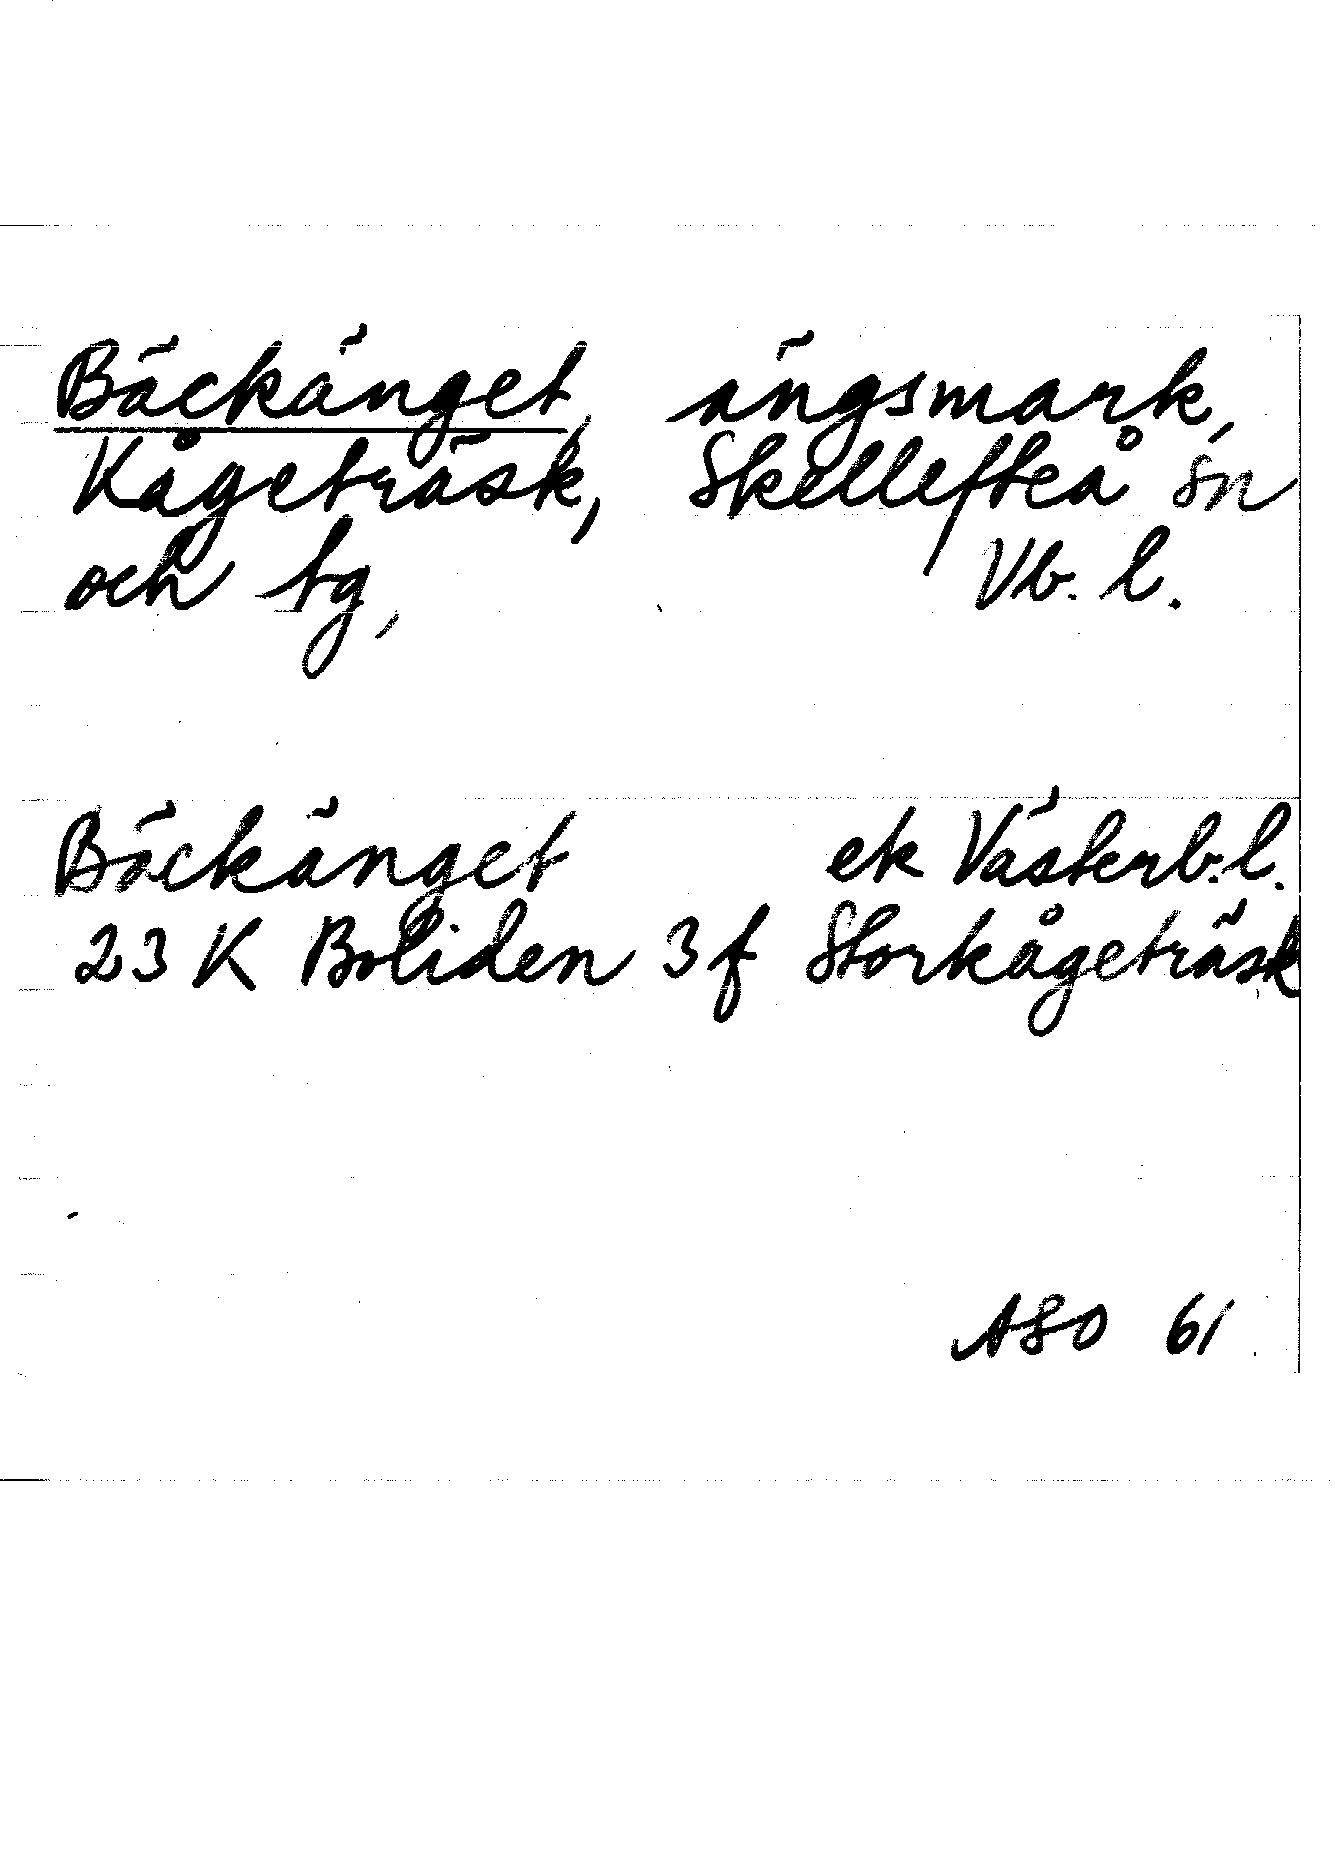 Bäckänget, ängsmark,
Kågeträsk, Skellefteå sn
och tg, Vb. l.
Bäckänget ek Västerb. l.
23 K Boliden 3 f Storkågeträsk
ASO 61